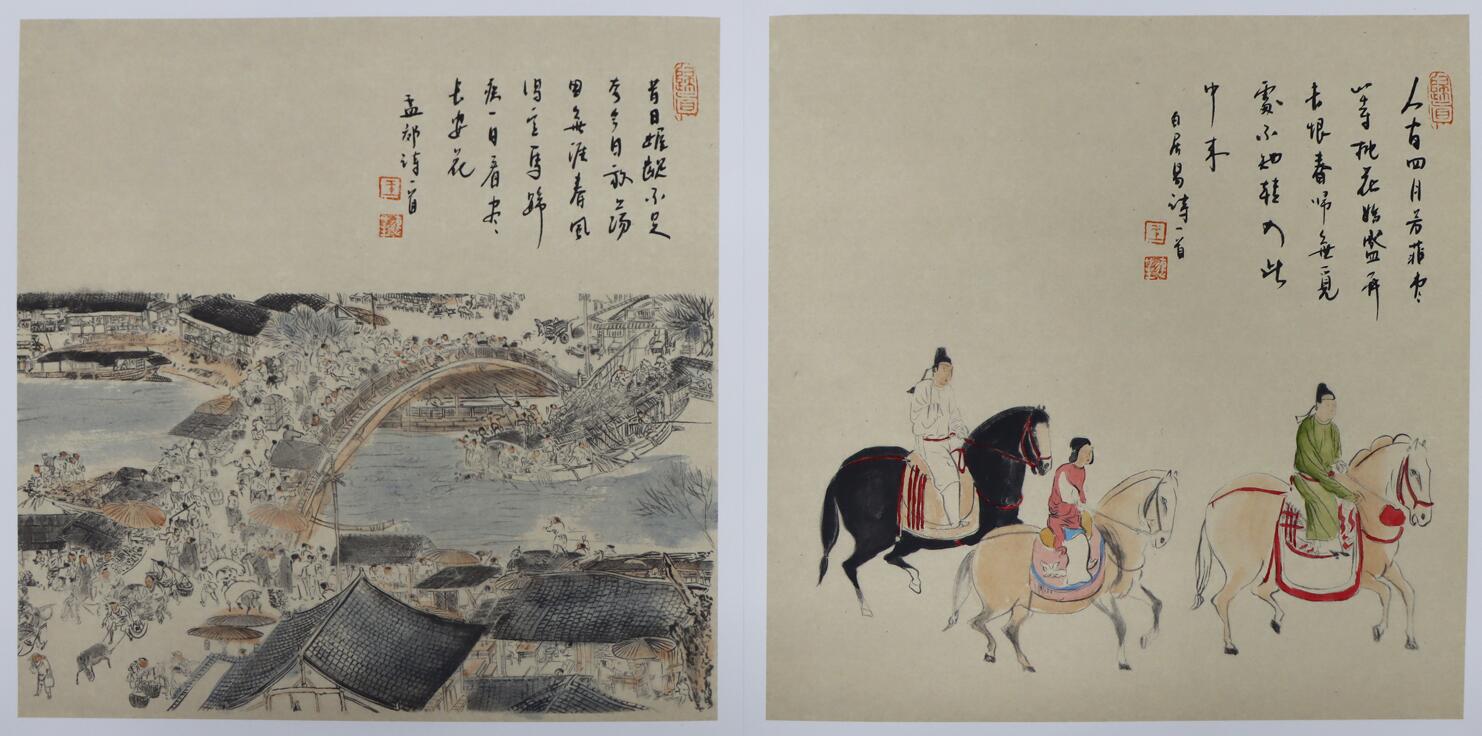 人间四月芳菲尽
山寺桃花始盛开
长恨春归無覓
處不知轉入此
中来
白居易诗一首
昔日龌龊不足
夸今日放荡
思無涯春風
得意馬蹄
疾一日看尽
长安花
孟郊诗一首